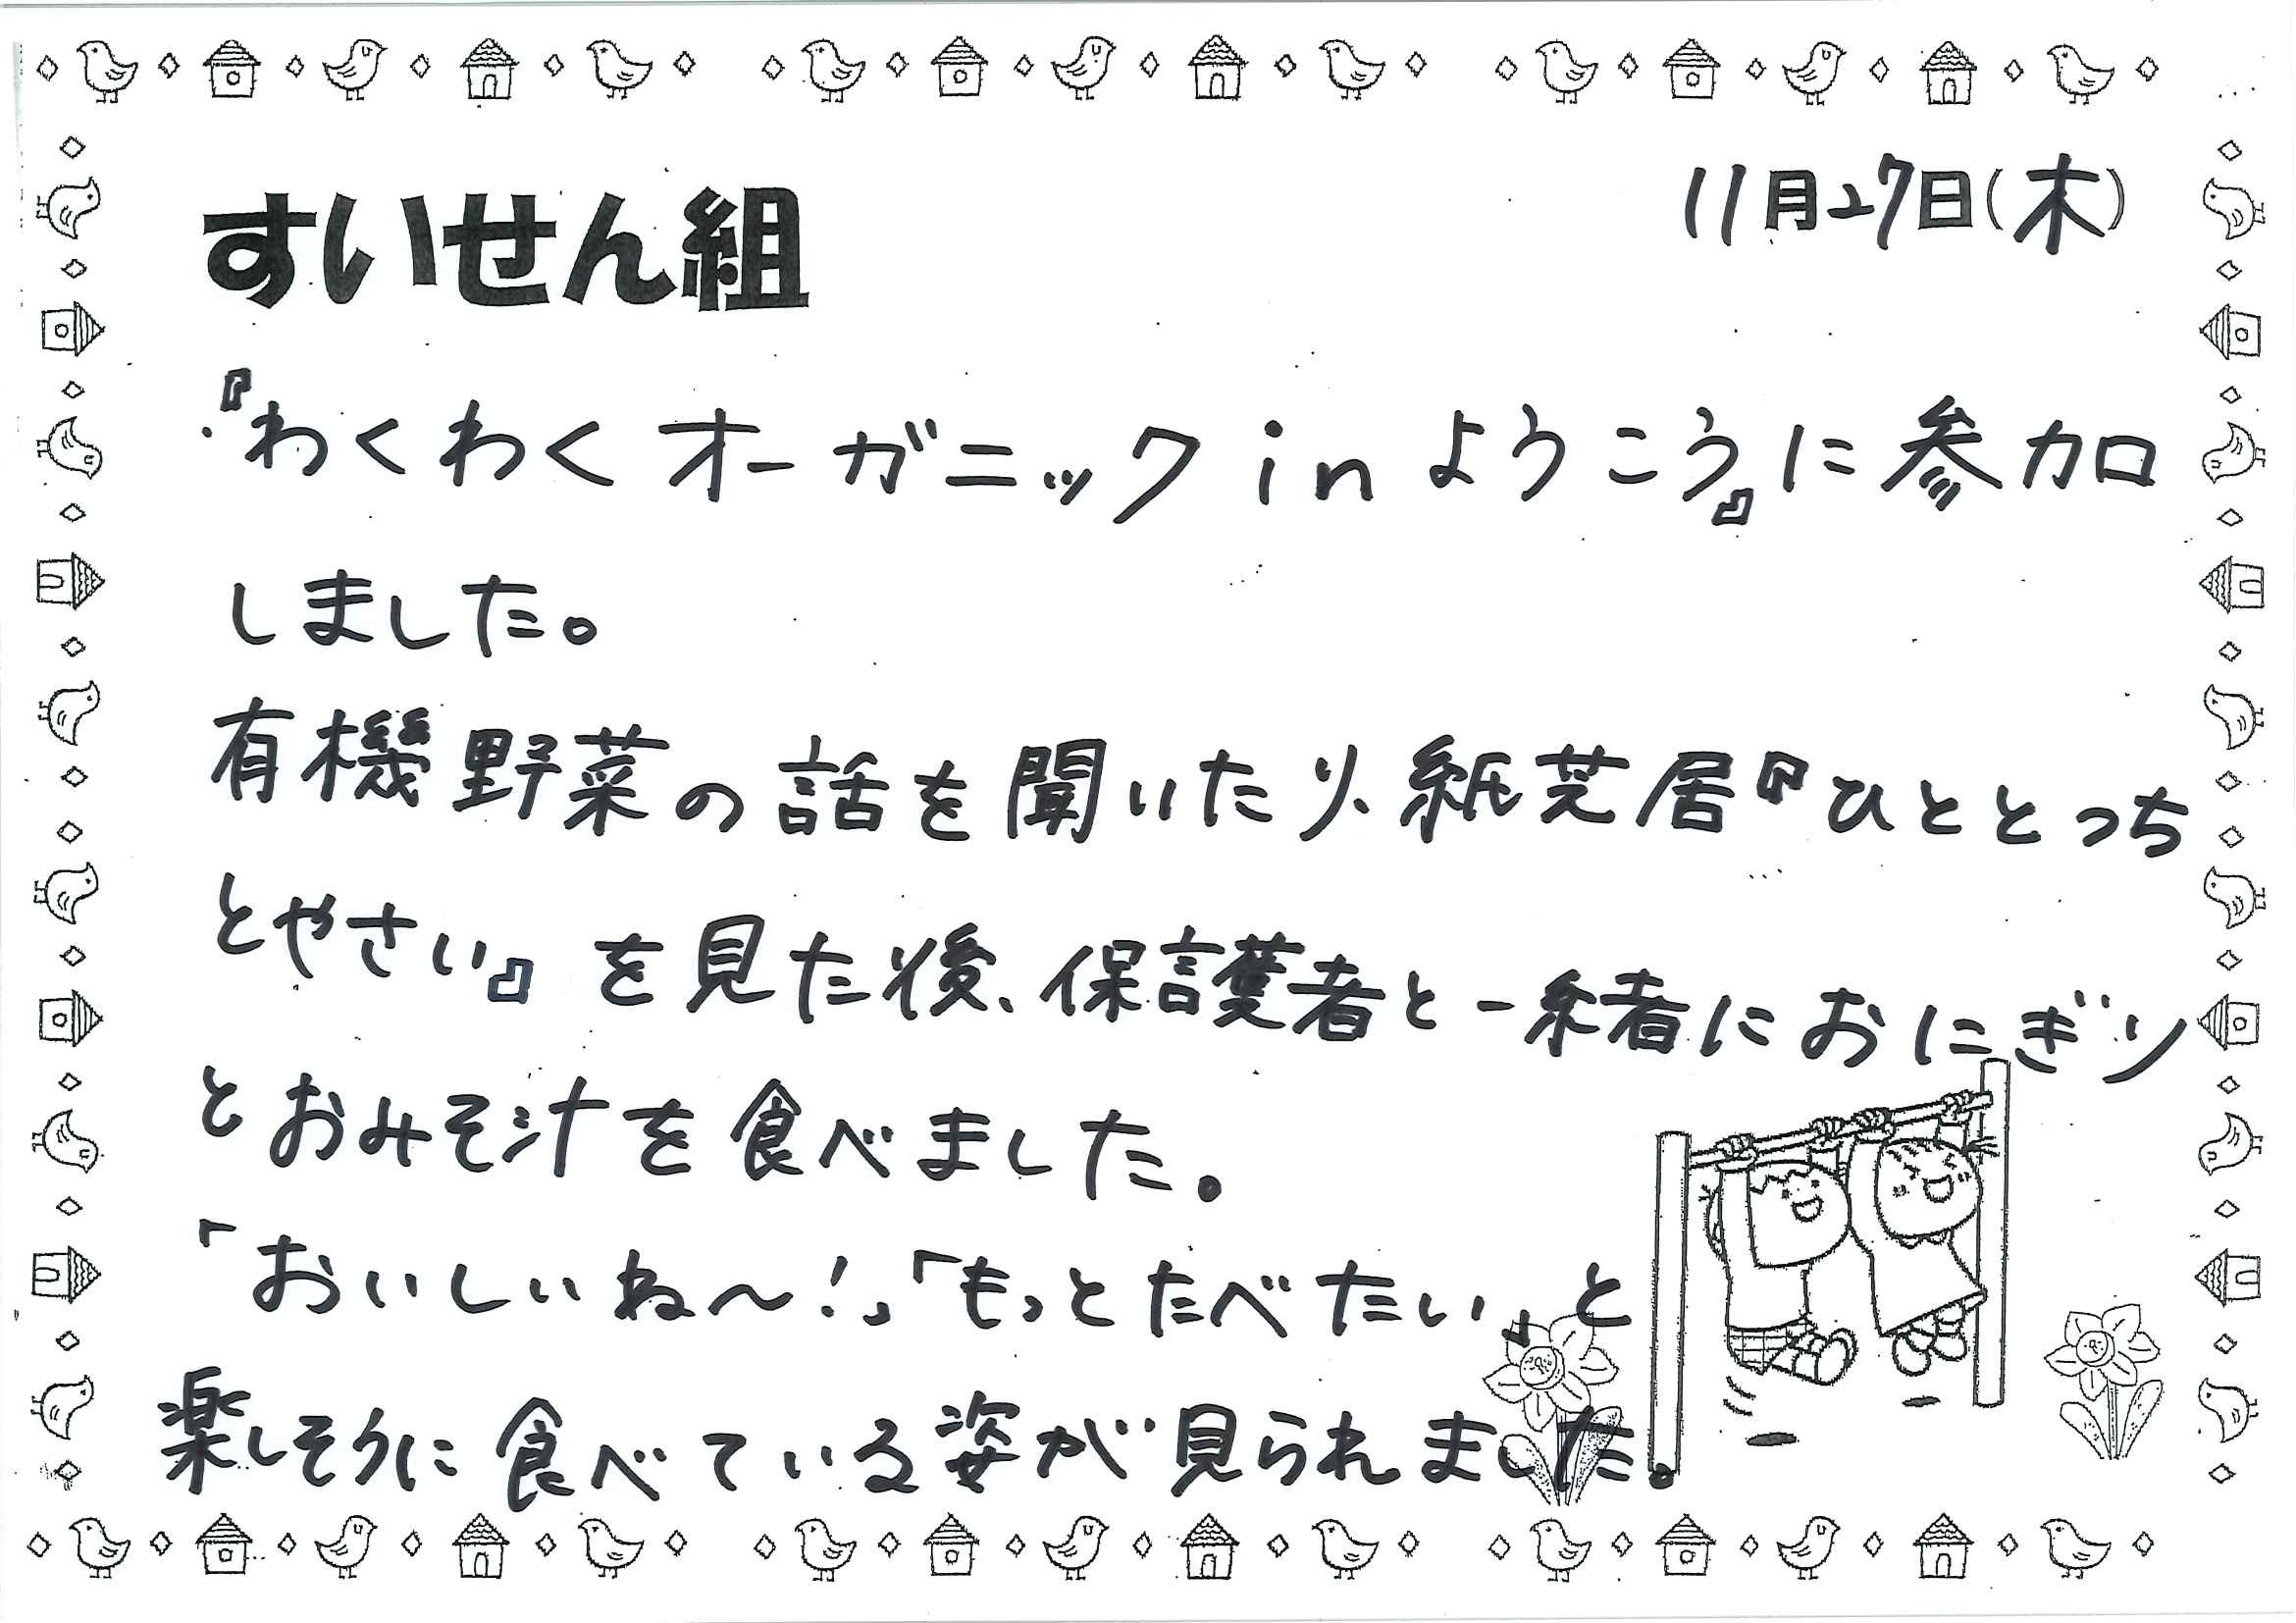 すいせん組
11月27日(木)
『わくわくオーガニックinようこう』に参加
しました。
有機野菜の話を聞いたり、紙芝居『ひととっち
とやさい』を見た後、保護者と一緒におにぎり
とおみそ汁を食べました。
「おいしいね～!」「もっとたべたい」と
楽しそうに食べている姿が見られました。